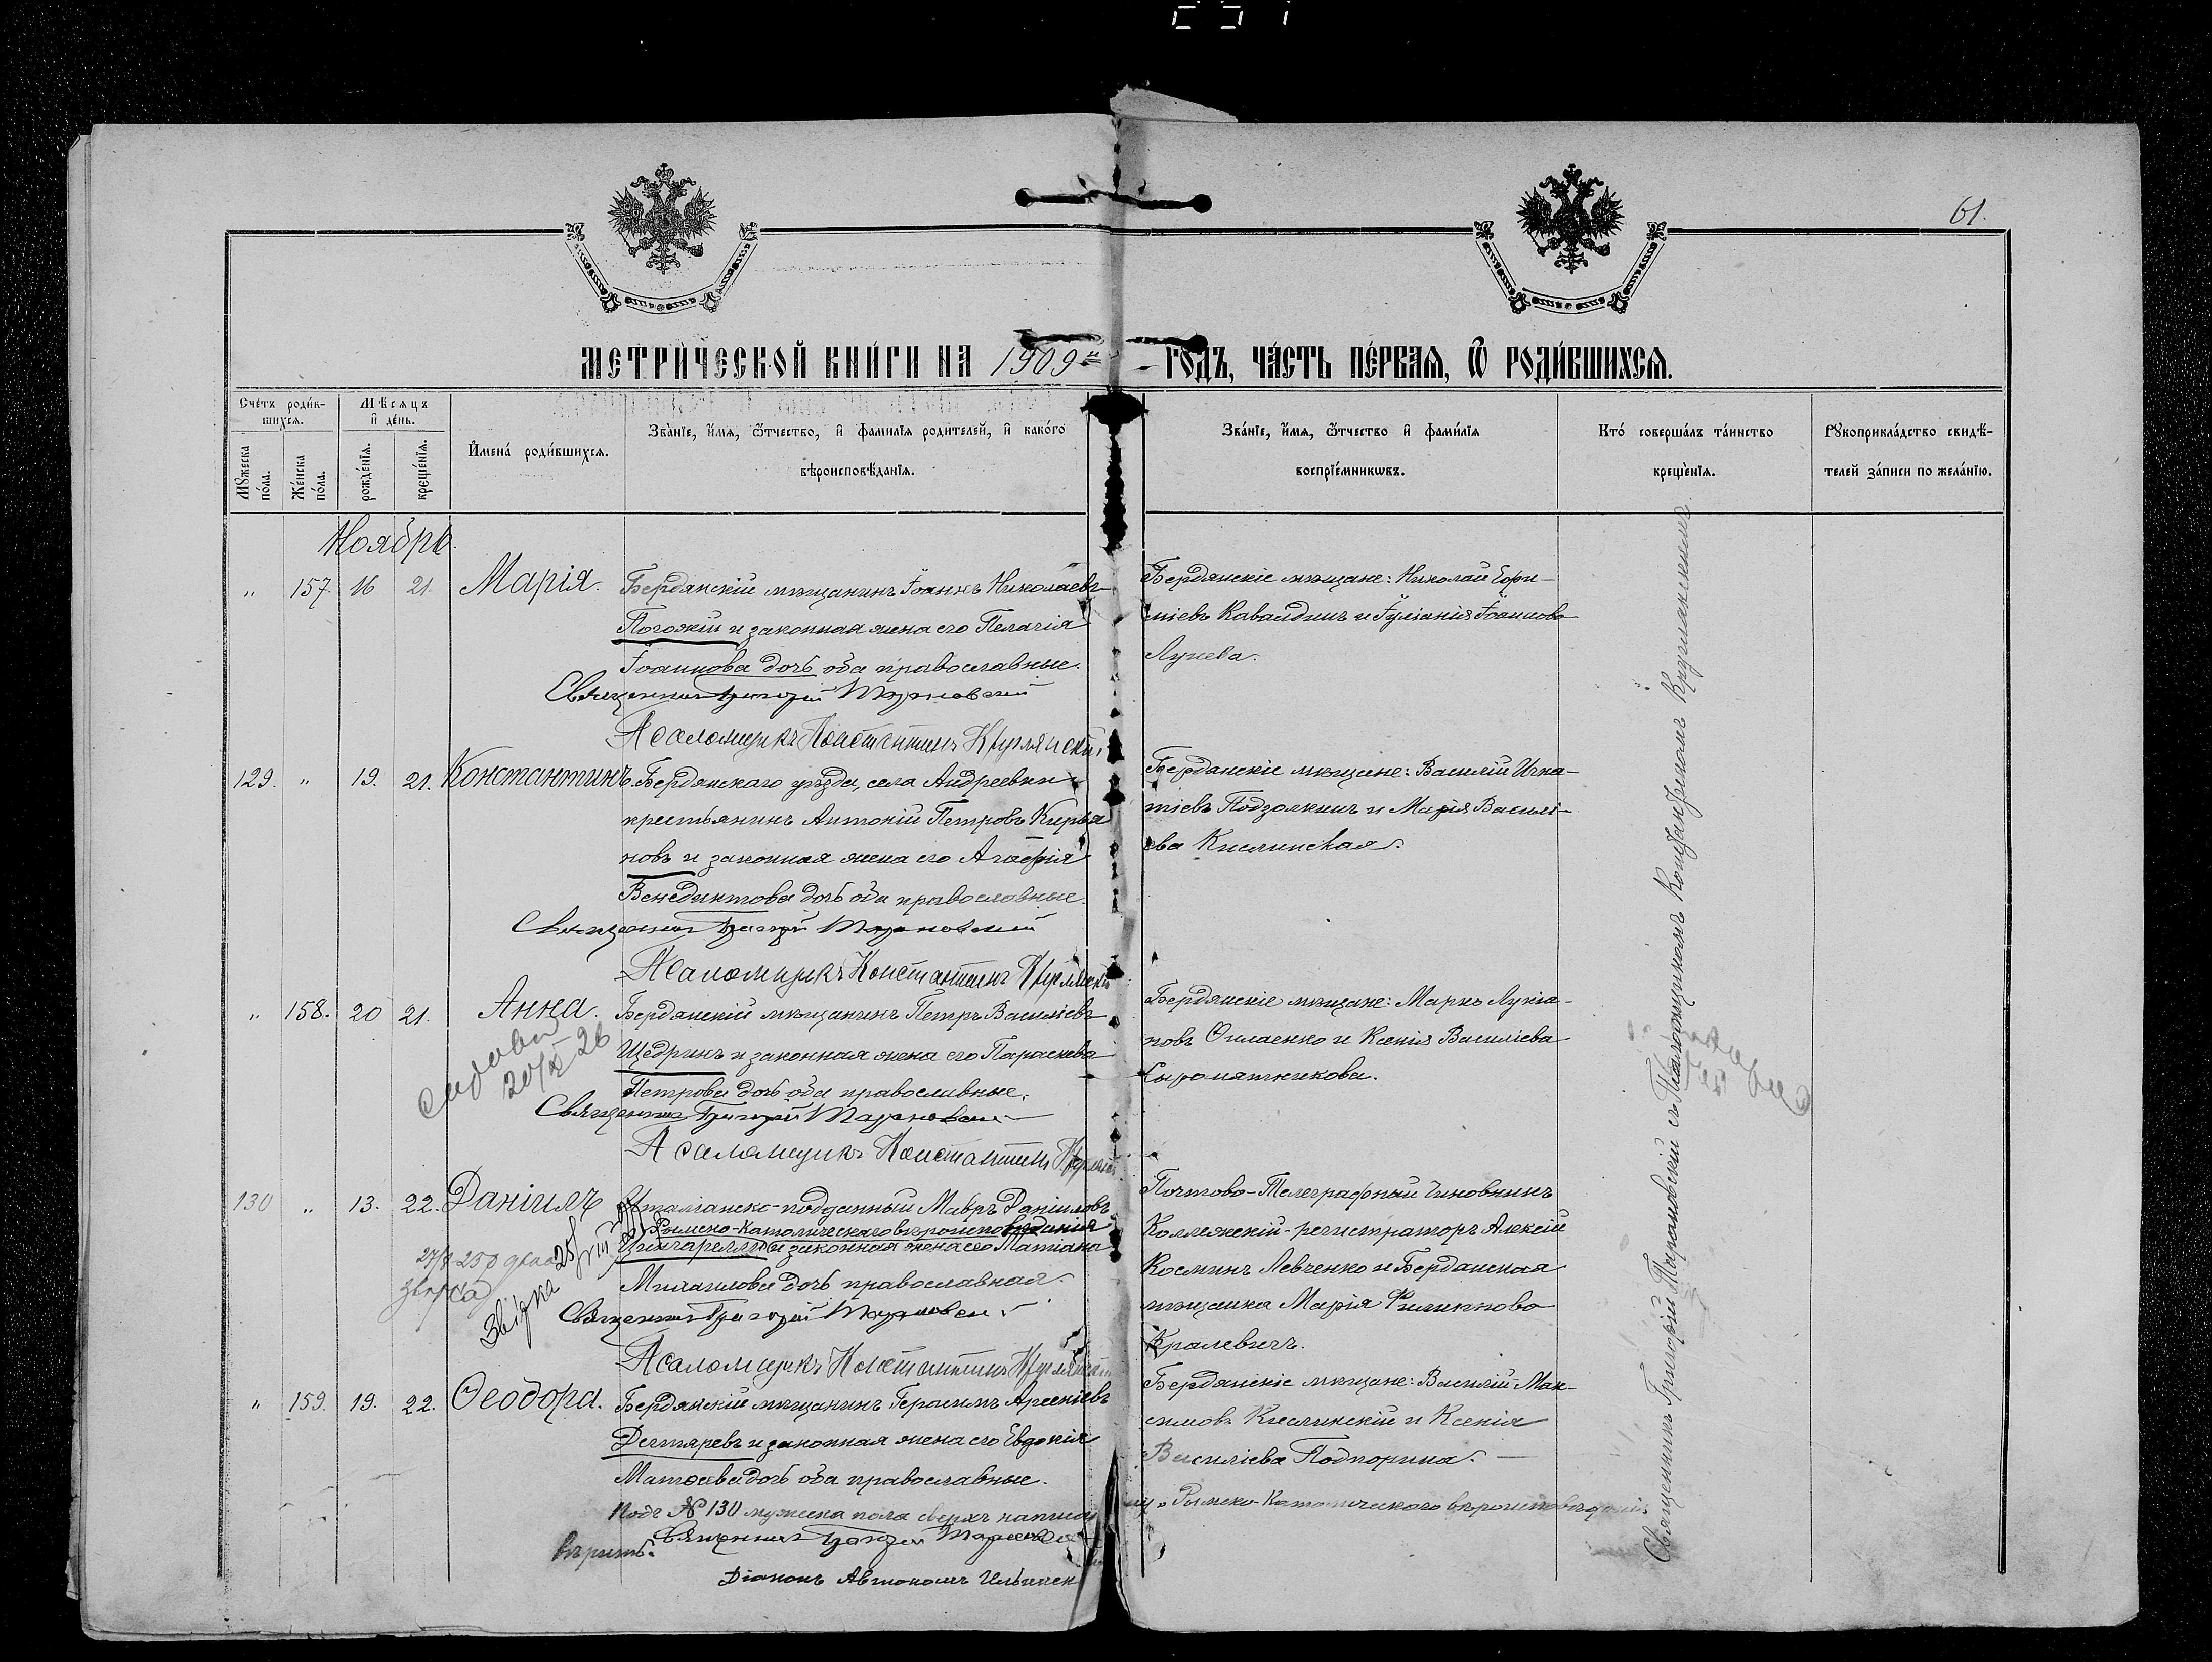 61.
МЕТРИ́ЧЕСКОЙ КНИ́ГИ НА 1909й ГОДЪ, ЧА́СТЬ ПЕ́РВАѦ, Ѿ РОДИ́ВШИХСѦ.
Сче́тъ роди́в-
шихсѧ.
Мѣ́сѧцъ
и҆ де́нь.
Мꙋ́жеска
по́ла.
Же́нска
по́ла.
рожде́нїѧ.
креще́нїѧ.
И҆мена̀ роди́вшихсѧ.
Зва́нїе, и҆́мѧ, ѻ҆́тчество, и҆ фами́лїѧ роди́телей, и҆ како́гѡ
вѣроисповѣ́данїѧ.
Зва́нїе, и҆́мѧ, ѻ҆́тчество и҆ фами́лїѧ
воспрїе́мникѡвъ.
Кто̀ соверша́лъ та́инство
креще́нїѧ.
Рꙋкоприкла́дство свидѣ́-
телей за́писи по жела́нїю.
Ноябрь.
" 157. 16 21. Марія. Бердянскій мѣщанинъ Іоаннъ Николаевъ
Погожій и законная жена его Пелагія
Іоаннова дочь оба православные.
Священникъ Григорій Тарановскій
Псаломщикъ Константинъ Круглянскій
Бердянскіе мѣщане: Николай
и Іуліанія Іоаннова
Лунева.
129. " 19. 21. Константинъ. Бердянскаго уѣзда, села Андреевки
крестьянинъ Антоній Петровъ Кирья
новъ и законная жена его Агафія
Венедиктова дочь оба православные.
Священникъ Григорій Тарановскій
Псаломщикъ Константинъ Круглянскій
Бердянскіе мѣщане: Василій Игна-
тіевъ Подзолкинъ и Марія Василі-
ева Кислинская.
" 158. 20 21. Анна. Бердянскій мѣщанинъ Петръ Василіевъ
Щедринъ и законная жена его Параскева
Петрова дочь оба православные.
Священникъ Григорій Тарановскій
Псаломщикъ Константинъ
Бердянскіе мѣщане: Маркъ Лукіа-
новъ и Ксенія Василіева
Сыромятникова.
130 " 13. 22. Даніилъ Италіанско-подданный Мавръ Даніиловъ
Римско-Католическаго вѣроисповѣданія
и законная жена его Татіана
Михаилова дочь православная.
Священникъ Григорій
Псаломщикъ Константинъ
Звірка
Почтово-Телеграфный чиновникъ
Коллежскій-регистраторъ Алексій
Косминъ Левченко и Бердянская
мѣщанка Марія Филиппова
Кралевичъ.
" 159. 19. 22. Ѳеодора. Бердянскій мѣщанинъ Герасимъ Арсеніевъ
Дегтяревъ и законная жена его Евдокія
Матѳеева дочь оба православные.
Бердянскіе мѣщане: Василій Мак-
симовъ Кислинскій и Ксенія
Василіева Подпорина.
Подъ № 130 мужска пола сверхъ написан
"Римско-Католическаго вѣроисповѣданія
вѣрить. Священникъ Григорій
Діаконъ Автономъ
Священникъ Григорій Тарановскій съ Псаломщикомъ Константиномъ Круглянскимъ